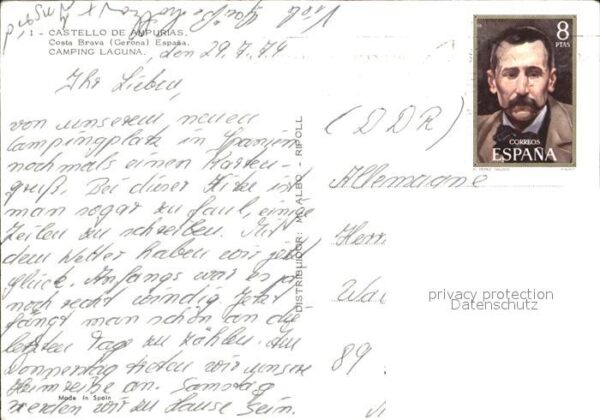 Viele Grüße
1 - CASTELLO DE AMPURIAS.
Costa Brava (Gerona) España.
CAMPING LAGUNA.
den 29.7.74
Ihr Lieben,
von unserem neuen
Campingplatz in Spanien
nochmals einen Karten-
gruß. Bei dieser Hitze ist
man sogar zu faul, einige
Zeilen zu schreiben. Mit
dem Wetter haben wir jetzt
Glück. Anfangs war es ja
noch recht windig. Jetzt
fängt man schon an die
letzten Tage zu zählen. Am
Donnerstag treten wir unsere
Heimreise an. Samstag
werden wir zu Hause sein.
Made in Spain
DISTRIBUIDOR: M. ALBO - RIPOLL
8
PTAS
CORREOS
ESPAÑA
(DDR)
Allemagne
Herrn
89
privacy protection
Datenschutz